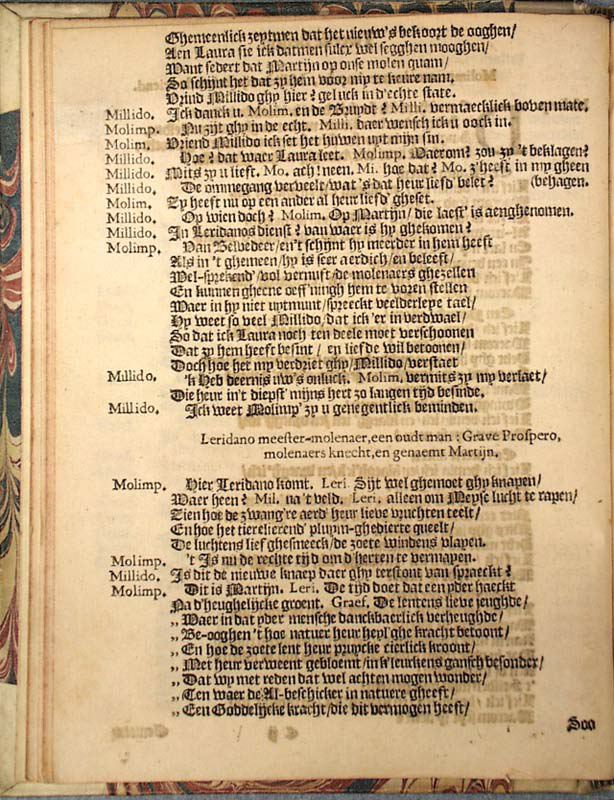 Ghemeenlick zeytmen dat het nieuw's bekoort de ooghen/
Aen Laura sie ick datmen sulcx wel segghen mooghen/
Want sedert dat Martijn op onse molen quam/
So schijnt het dat zy hem voor my te keure nam.
Vrind Millido ghy hier? geluck in d'echte state.
Millido. Ick danck u. Molim. en de Bruydt? Milli. vermaecklick boven mate.
Molimp. Nu zijt ghy in de echt. Milli. daer wensch ick u oock in.
Molim. Vriend Millido ick set het huwen uyt mijn sin.
Millido. Hoe? dat waer Laura leet. Molimp. Waerom? zou zy 't beklagen?
Millido. Mits zy u lieft. Mo. ach! neen. Mi. hoe dat? Mo. z'heeft in my gheen
Millido. De ommegang verveelt/wat 's dat heur liefd' belet? (behagen.
Molim. Zy heeft nu op een ander al heur liefd' gheset.
Millido. Op wien doch? Molim. Op Martijn/ die laest' is aenghenomen.
Millido. In Leridanos dienst? van waer is hy ghekomen?
Molimp. Van Belvedeer/en't schijnt hy meerder in hem heeft
Als in 't ghemeen/hy is seer aerdich/en beleeft/
Wel-sprekend/ vol vernuft/de molenaers ghezellen
En kunnen gheene oeff'ningh hem te voren stellen
Waer in hy niet uytmunt/spreeckt veelderleye tael/
Hy weet so veel Millido/dat ick 'er in verdwael/
So dat ick Laura noch ten deele moet verschoonen
Dat zy hem heeft besint/ en liefde wil betoonen/
Doch hoe het my verdriet ghy/Millido/verstaet
Millido. 'k Heb deernis uw's onluck. Molim. vermits zy my verlaet/
Die heur in't diepst' mijns hert zo langen tijd besinde.
Millido. Ick weet Molimp' zy u genegentlick beminden.
Leridano meester-molenaer, een oudt man: Grave Prospero,
molenaers knecht, en genaemt Martijn.
Molimp. Hier Leridano komt. Leri. Sijt wel ghemoet ghy knapen/
Waer heen? Mil. na 't veld. Leri. alleen om Meyse lucht te rapen/
Zien hoe de zwang're aerd' heur lieve vruchten teelt/
En hoe het tierelierend' pluym-ghedierte queelt/
De luchtens lief ghesmeeck/de zoete windens vlagen.
Molimp. 't Is nu de rechte tijd om d'herten te vermayen.
Millido. Is dit de nieuwe knaep daer ghy terstont van spraeckt?
Molimp. Dit is Martijn. Leri. De tijd doet dat een yder haeckt
Na d'heughelijcke groent. Graef. De lentens lieve jeughde/
„ Waer in dat yder mensche danckbaerlick verheughde/
„ Be-ooghen 't hoe natuer heur heyl'ghe kracht betoont/
„ En hoe de zoete lent heur pruycke cierlick kroont/
„ Met heur verweent gebloemt/in k'leurkens gansch besonder/
„ Dat wy met reden dat wel achten mogen wonder/
„ Ten waer de Al-beschicker in natuere gheeft/
„ Een Goddelijcke kracht/die dit vermogen heeft/
Soo